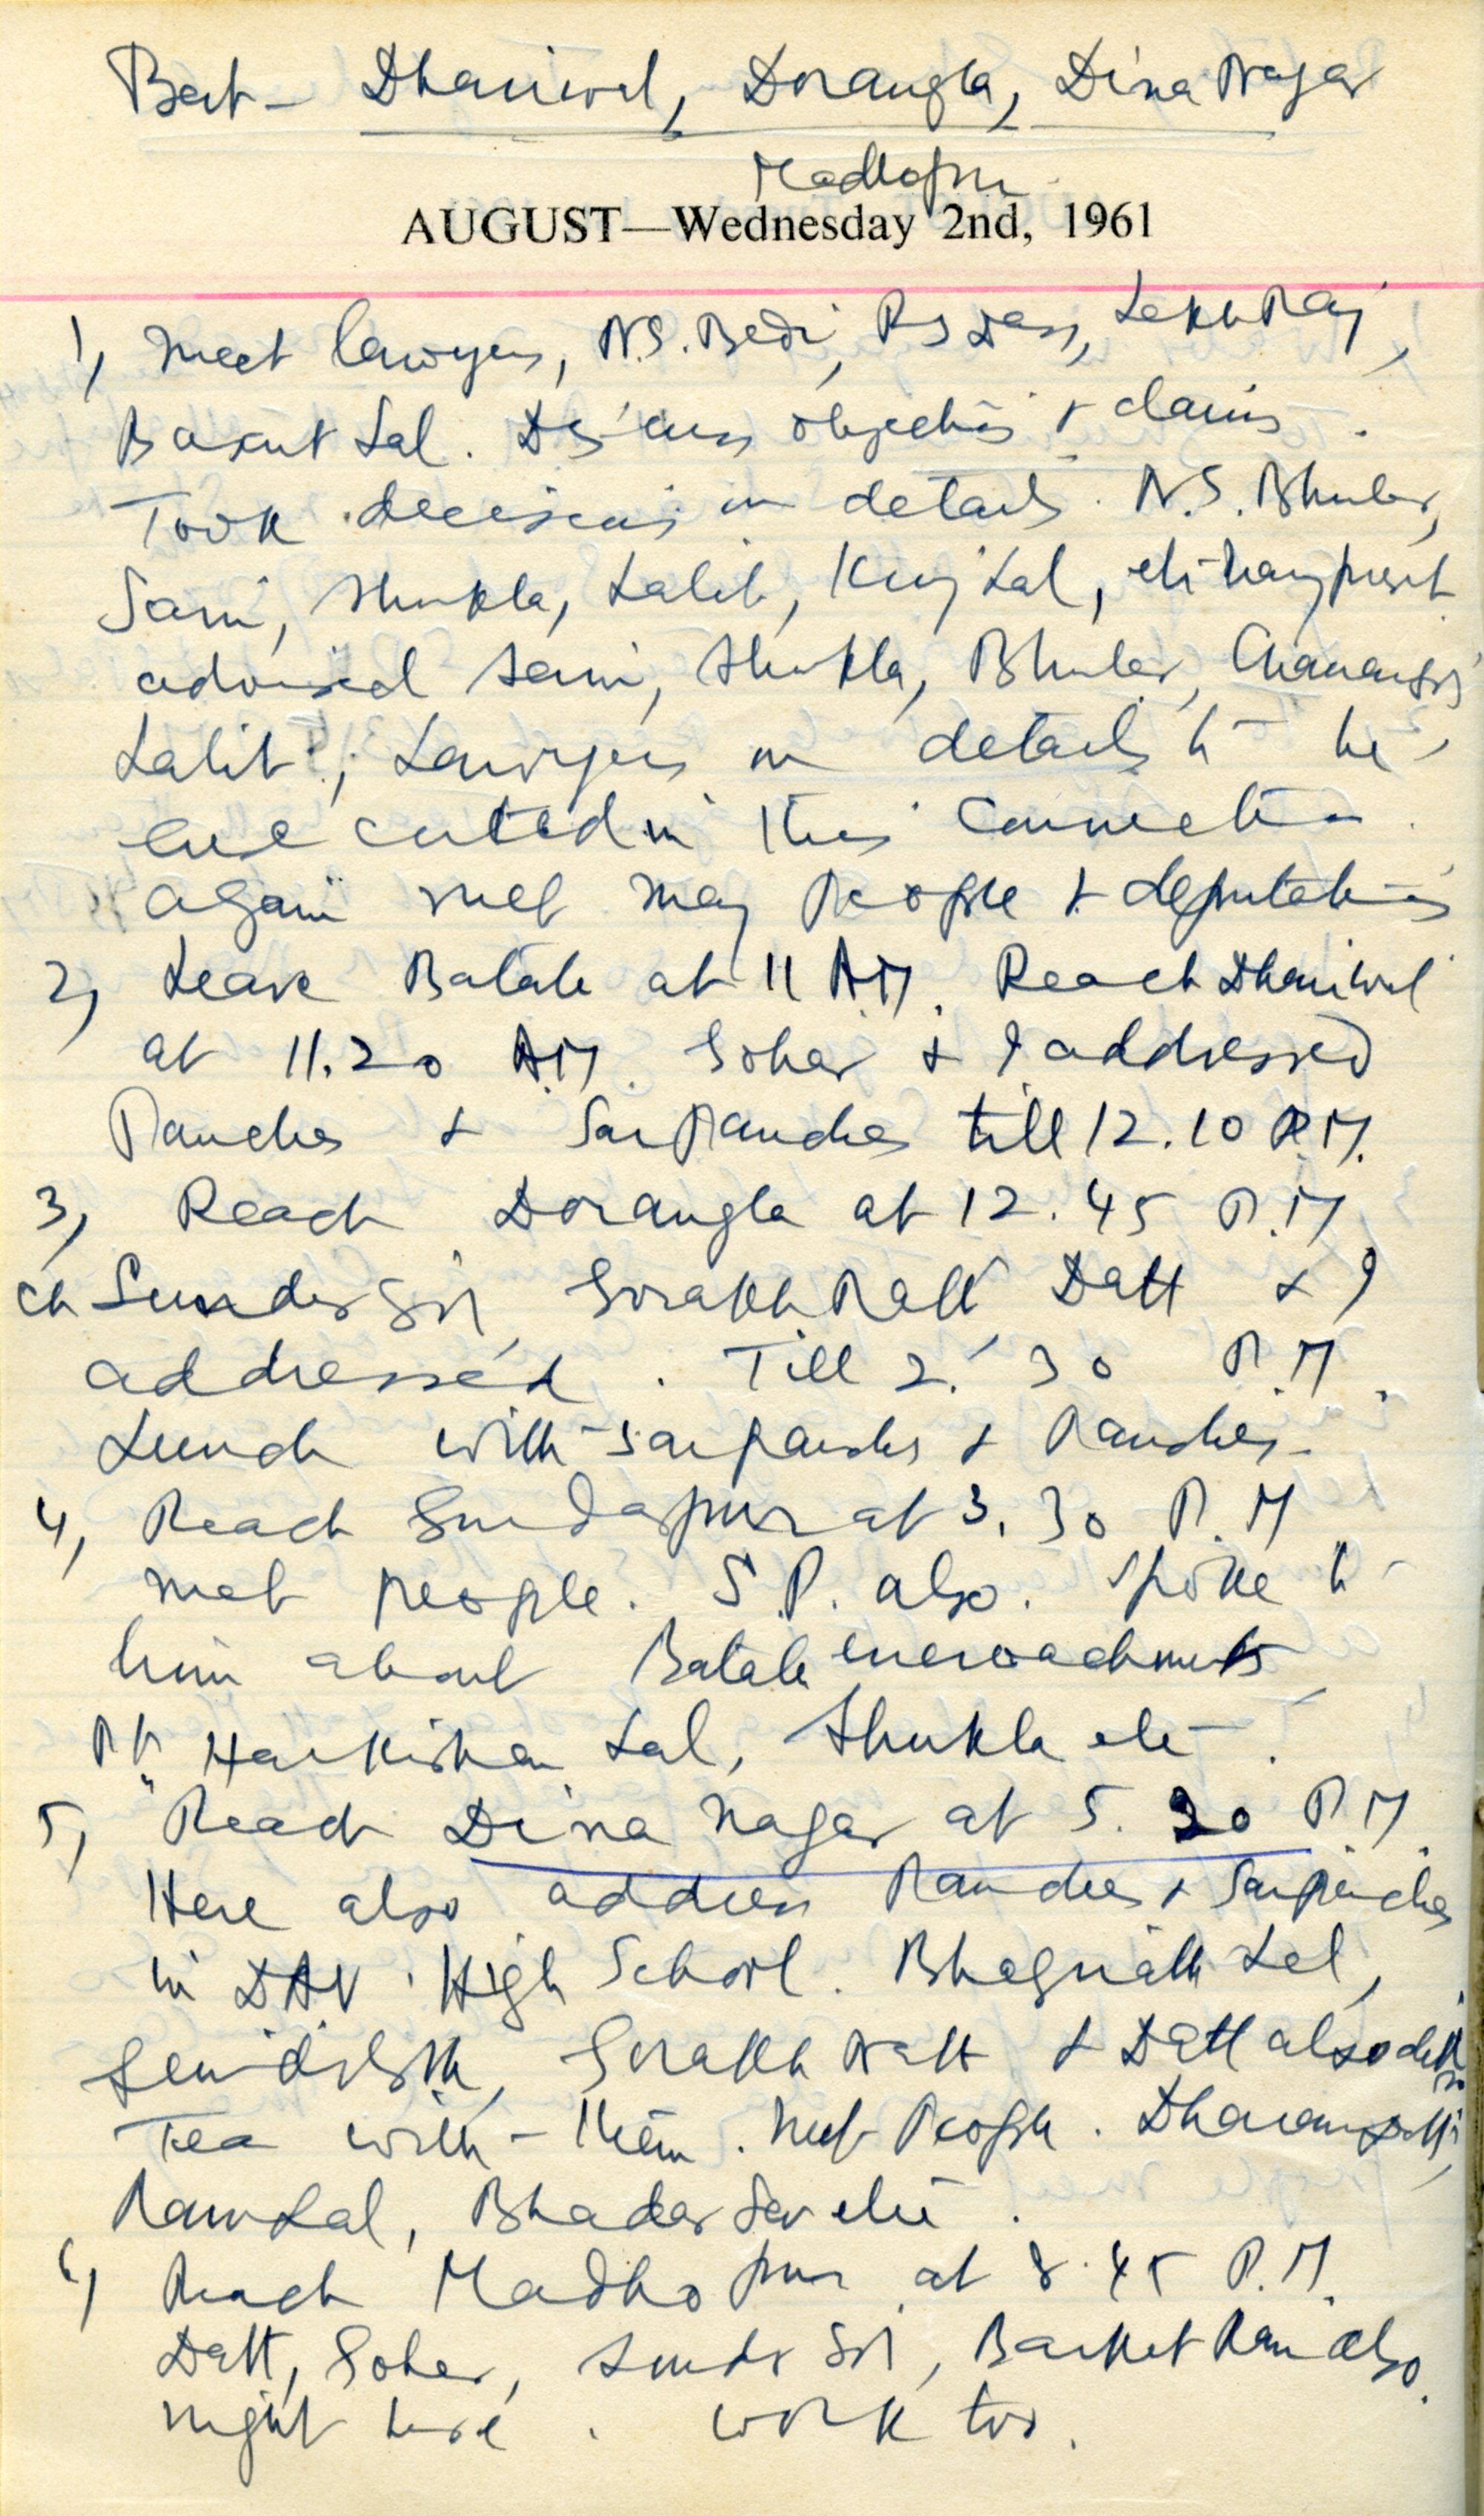 Bert - Dhariwal, Dorangla, Dina Nagar
Madhopur
AUGUST—Wednesday 2nd, 1961
1, Meet lawyers, N.S. Bedi, Lekh Raj,
Basant Lal. Discuss objections & claims.
Took decisions in details. N.S. Bhuler,
Saini, Shukla, Lalit, Kunj Lal, etc being present
advised Saini, Shukla, Bhuler, Chanan Sgh
Lalit, Lawyers on details to be
executed in this connection.
again met many People & deputations
2, Leave Batala at 11 A.M. Reach Dhariwal
at 11.20 A.M. & I addressed
Panches & SarPanches till 12.10 P.M.
3, Reach Dorangla at 12.45 P.M
Ch Sunder Sgh, Gorakh Nath Datt & I
addressed. Till 2.30 P.M.
Lunch with Sarpanches & Panches.
4, Reach Gurdaspur at 3.30 P.M
met people. S.P. also. Spoke to
him about Batala encroachments,
Pt. Harkishan Lal, Shukla etc.
5, Reach Dina Nagar at 5.30 P.M.
Here also address Panches & Sarpanches
in DAV High School. Lal,
Gorakh Nath & Datt also
Tea with them. Met People.
Ram Lal, Bhadar Sen etc.
6, Reach Madhopur at 8.45 P.M.
Datt, Sunder Sgh, Barket Ram also.
night here. work too.